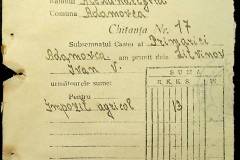 Comuna Adamovca
Chitanța Nr. 17
Subsemnatul Casier al Primăriei
Adamovca am primit dela Litvinov
Ivan V.
următoarele sume:
SUMA
Pentru
Impozit agricol 13